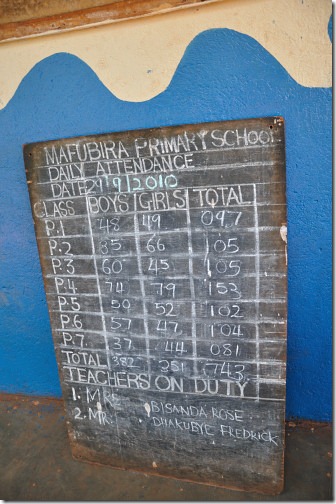 MAFUBIRA PRIMARY SCHOOL
DAILY ATTENDANCE
DATE 9/2010
CLASS BOYS GIRLS TOTAL
P.1 48 49 097
P.2 66 105
P.3 60 45 105
P.4 74 79 153
P.5 50 52 102
P.6 57 47 104
P.7. 37 44 081
TOTAL 743
TEACHERS ON DUTY
1. MRS. BISANDA ROSE
2. MR. DHAKUBYE FREDRICK